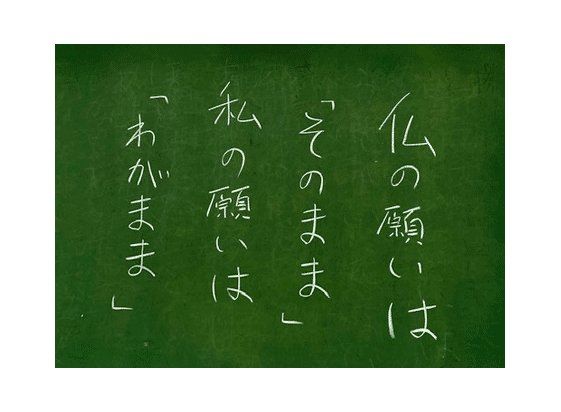 仏の願いは
「そのまま」
私の願いは
「わがまま」